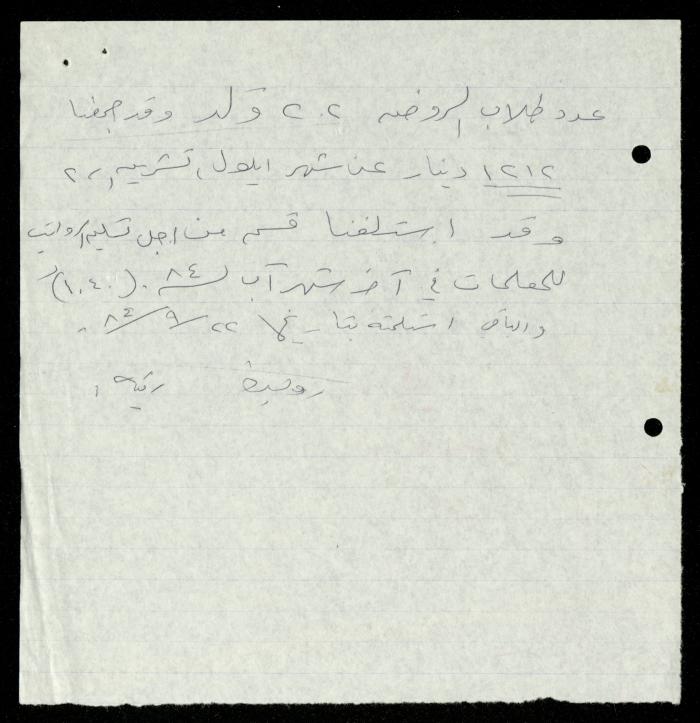 عدد طلاب الروضه ٢٠٢ ولد وقد جمعنا
١٢١٢ دينار عن شهر ايلول، تشرين ١، ٢
وقد استلفنا قسم من اجل تسليم الرواتب
للمعلمات في آخر شهر آب لسنة ٨٤. (١٠٤٠)
والباقي استلمته بتاريخ ٢٢/٩/٨٤.